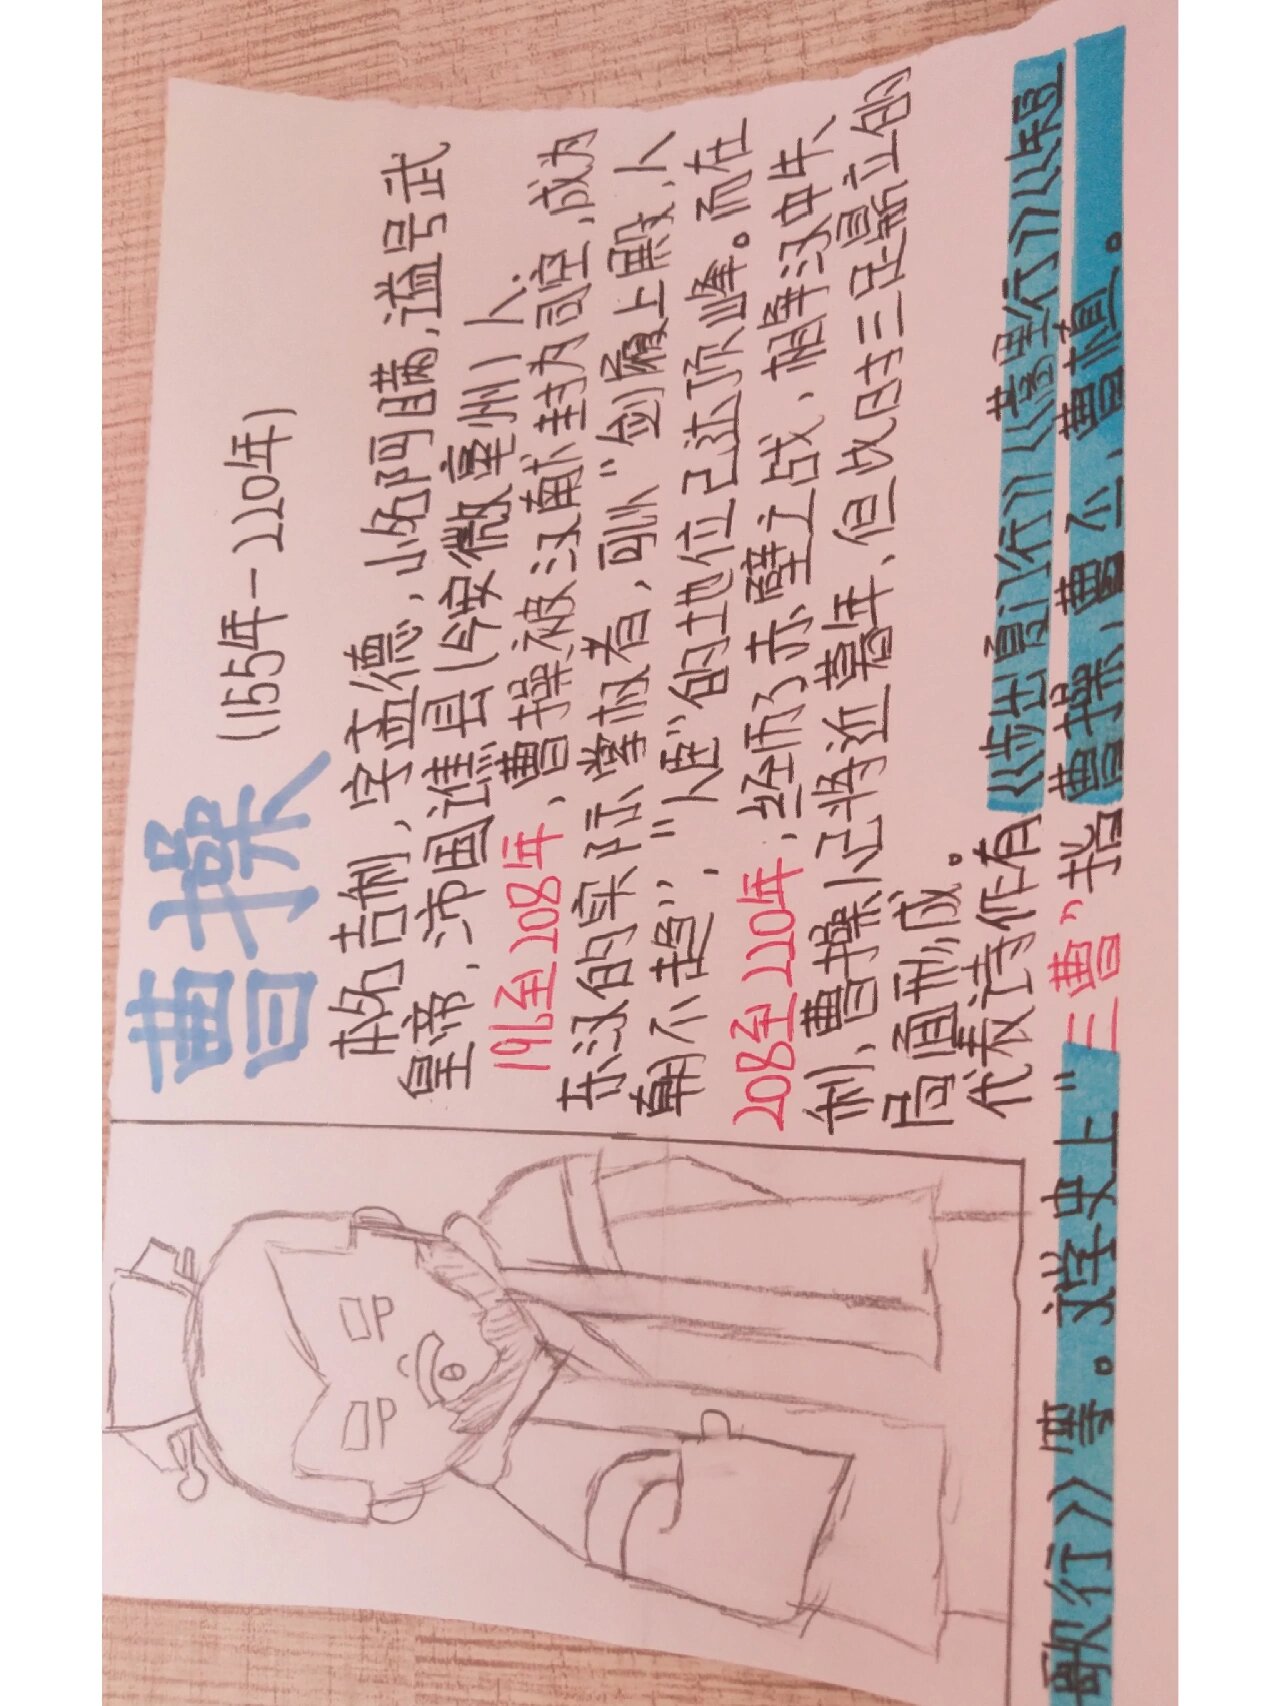 曹操
(155年-220年)
本名吉利，字孟德，小名阿瞒，谥号武
皇帝，沛国谯县(今安徽亳州)人。
196至208年，曹操被汉献封为司空，成为
东汉的实际掌权者，可以“剑履上殿，入
朝不趋”，“人臣”的地位已达顶峰。而在
208至220年，经历了赤壁之战、相争汉中失
利，曹操已将近暮年，但此时三足鼎立的
局面形成。
代表诗作有《步出夏门行》《蒿里行》《短
歌行》等。文学史上“三曹”指曹操、曹丕、曹植。